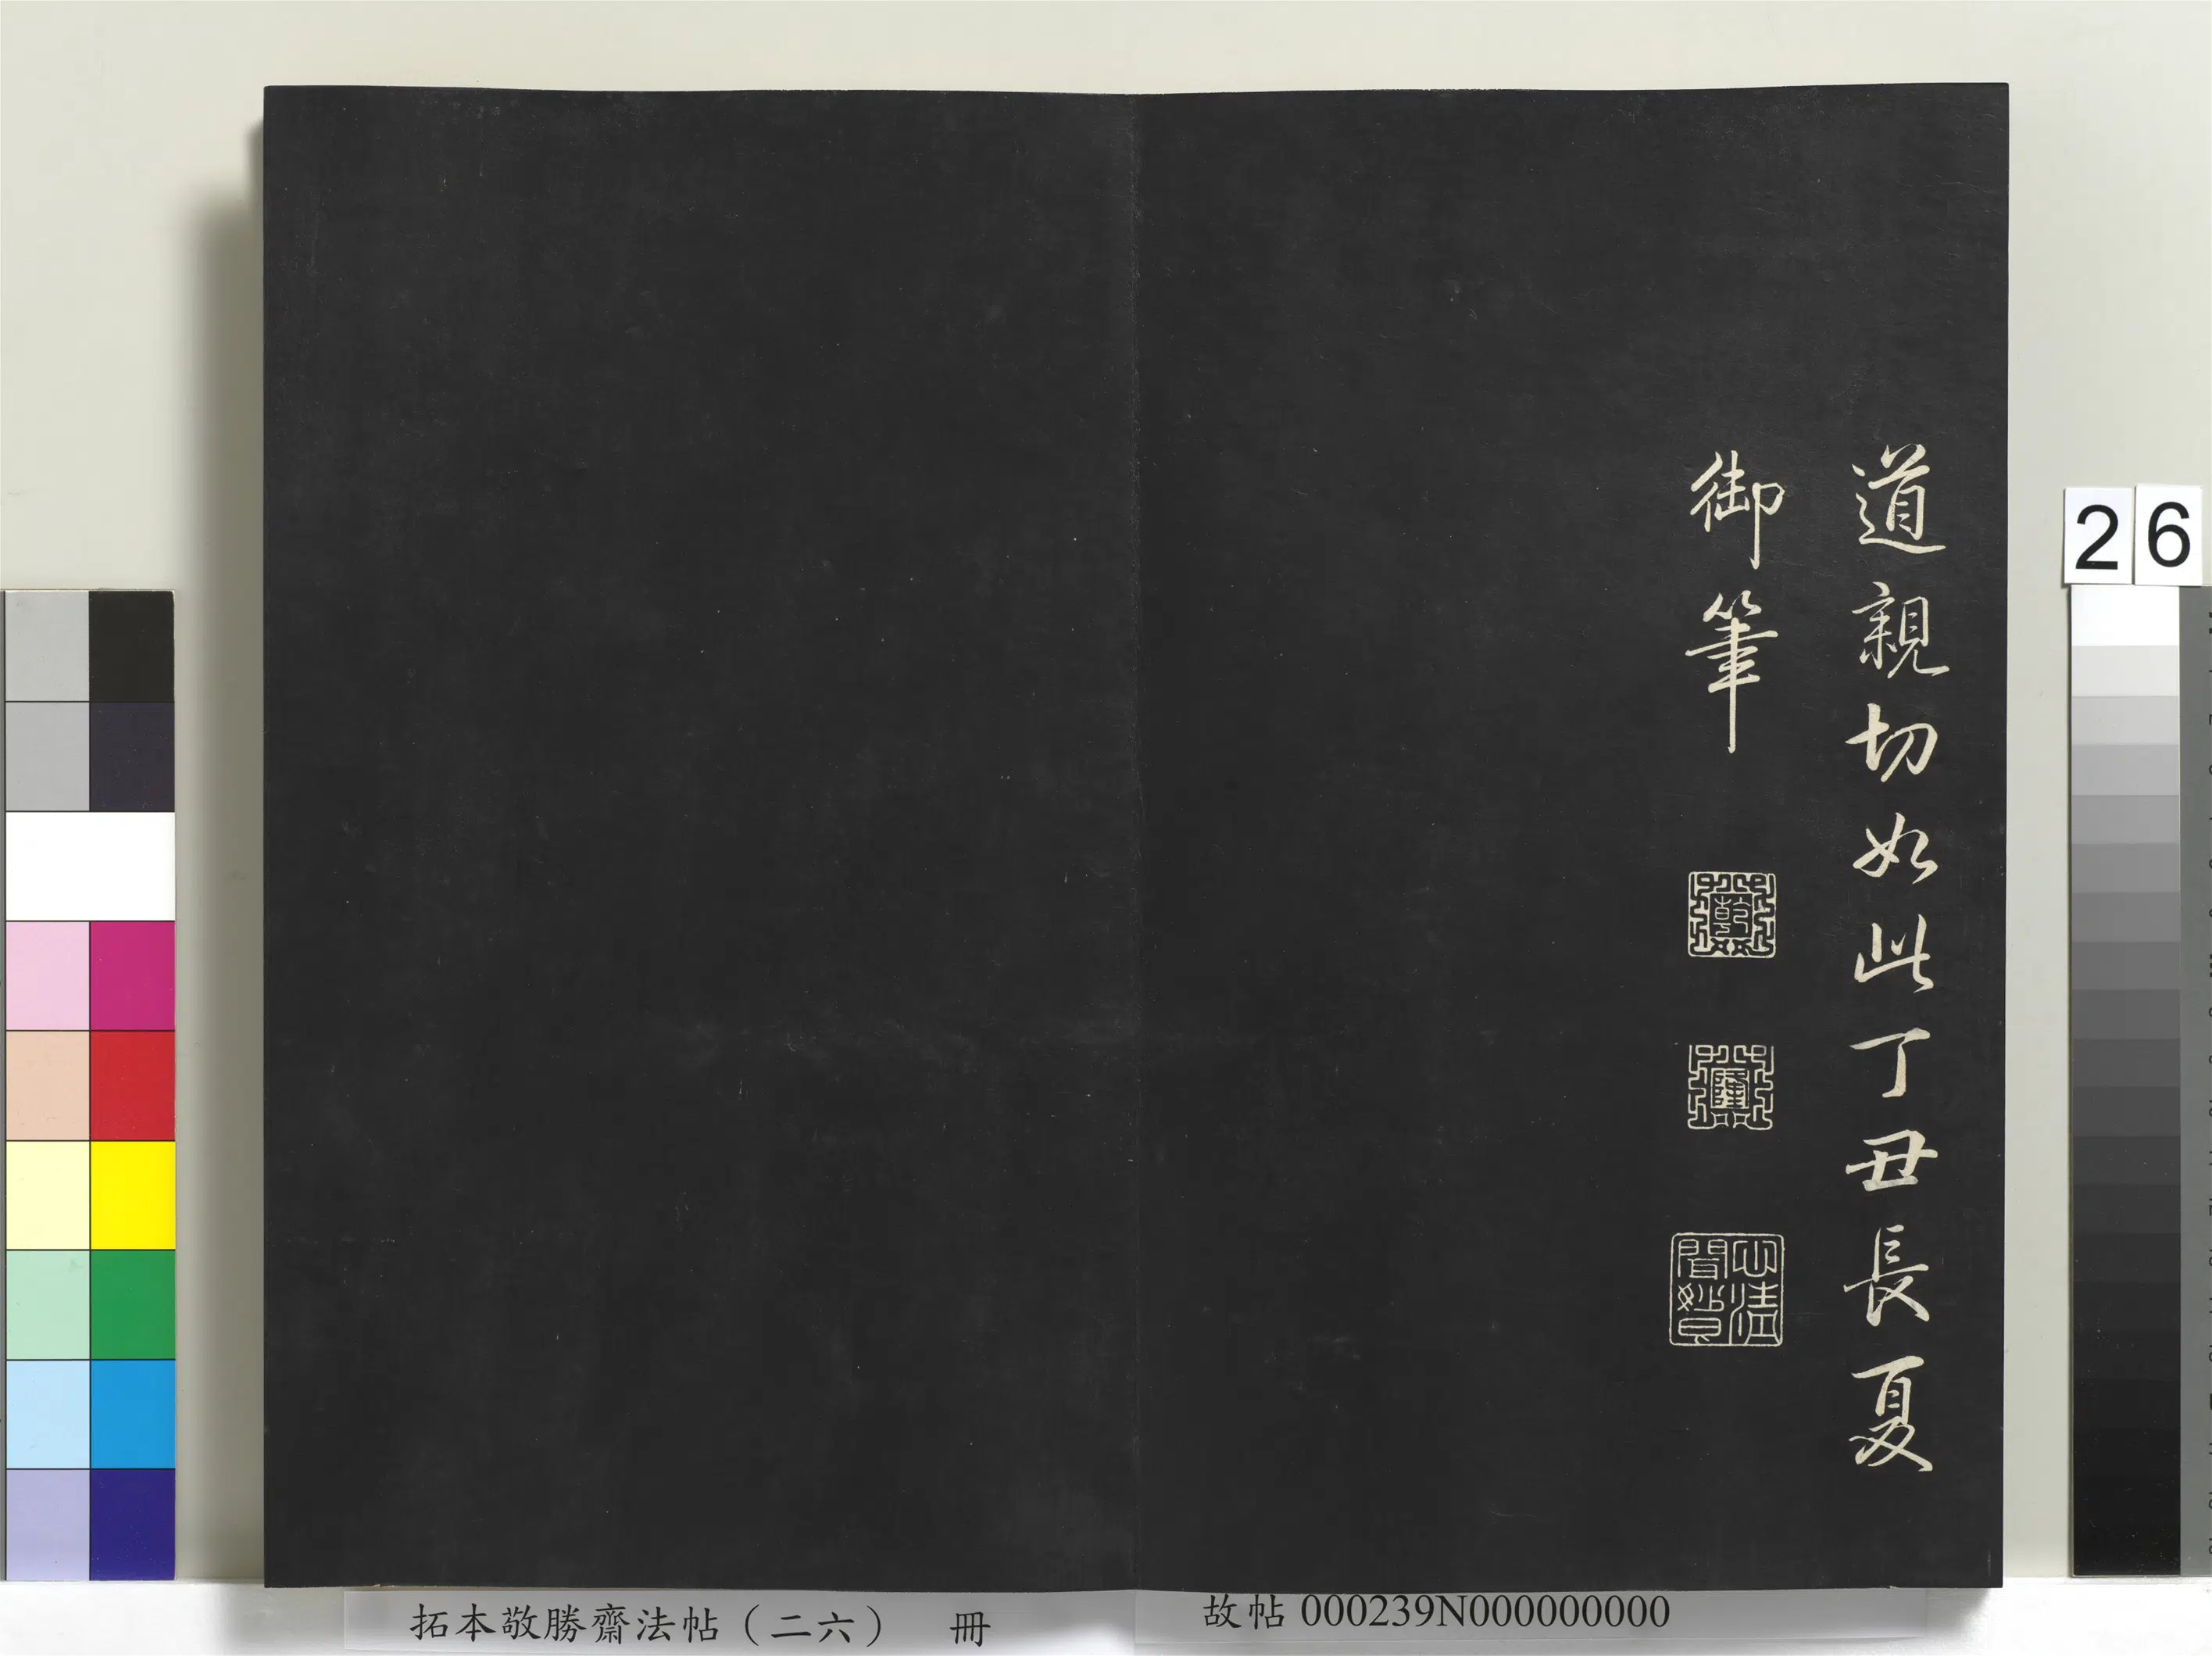 道親切如此丁丑長夏
御筆
乾
隆
心清
聞妙香
26
拓本敬勝齋法帖（二六） 冊
故帖 000239N000000000